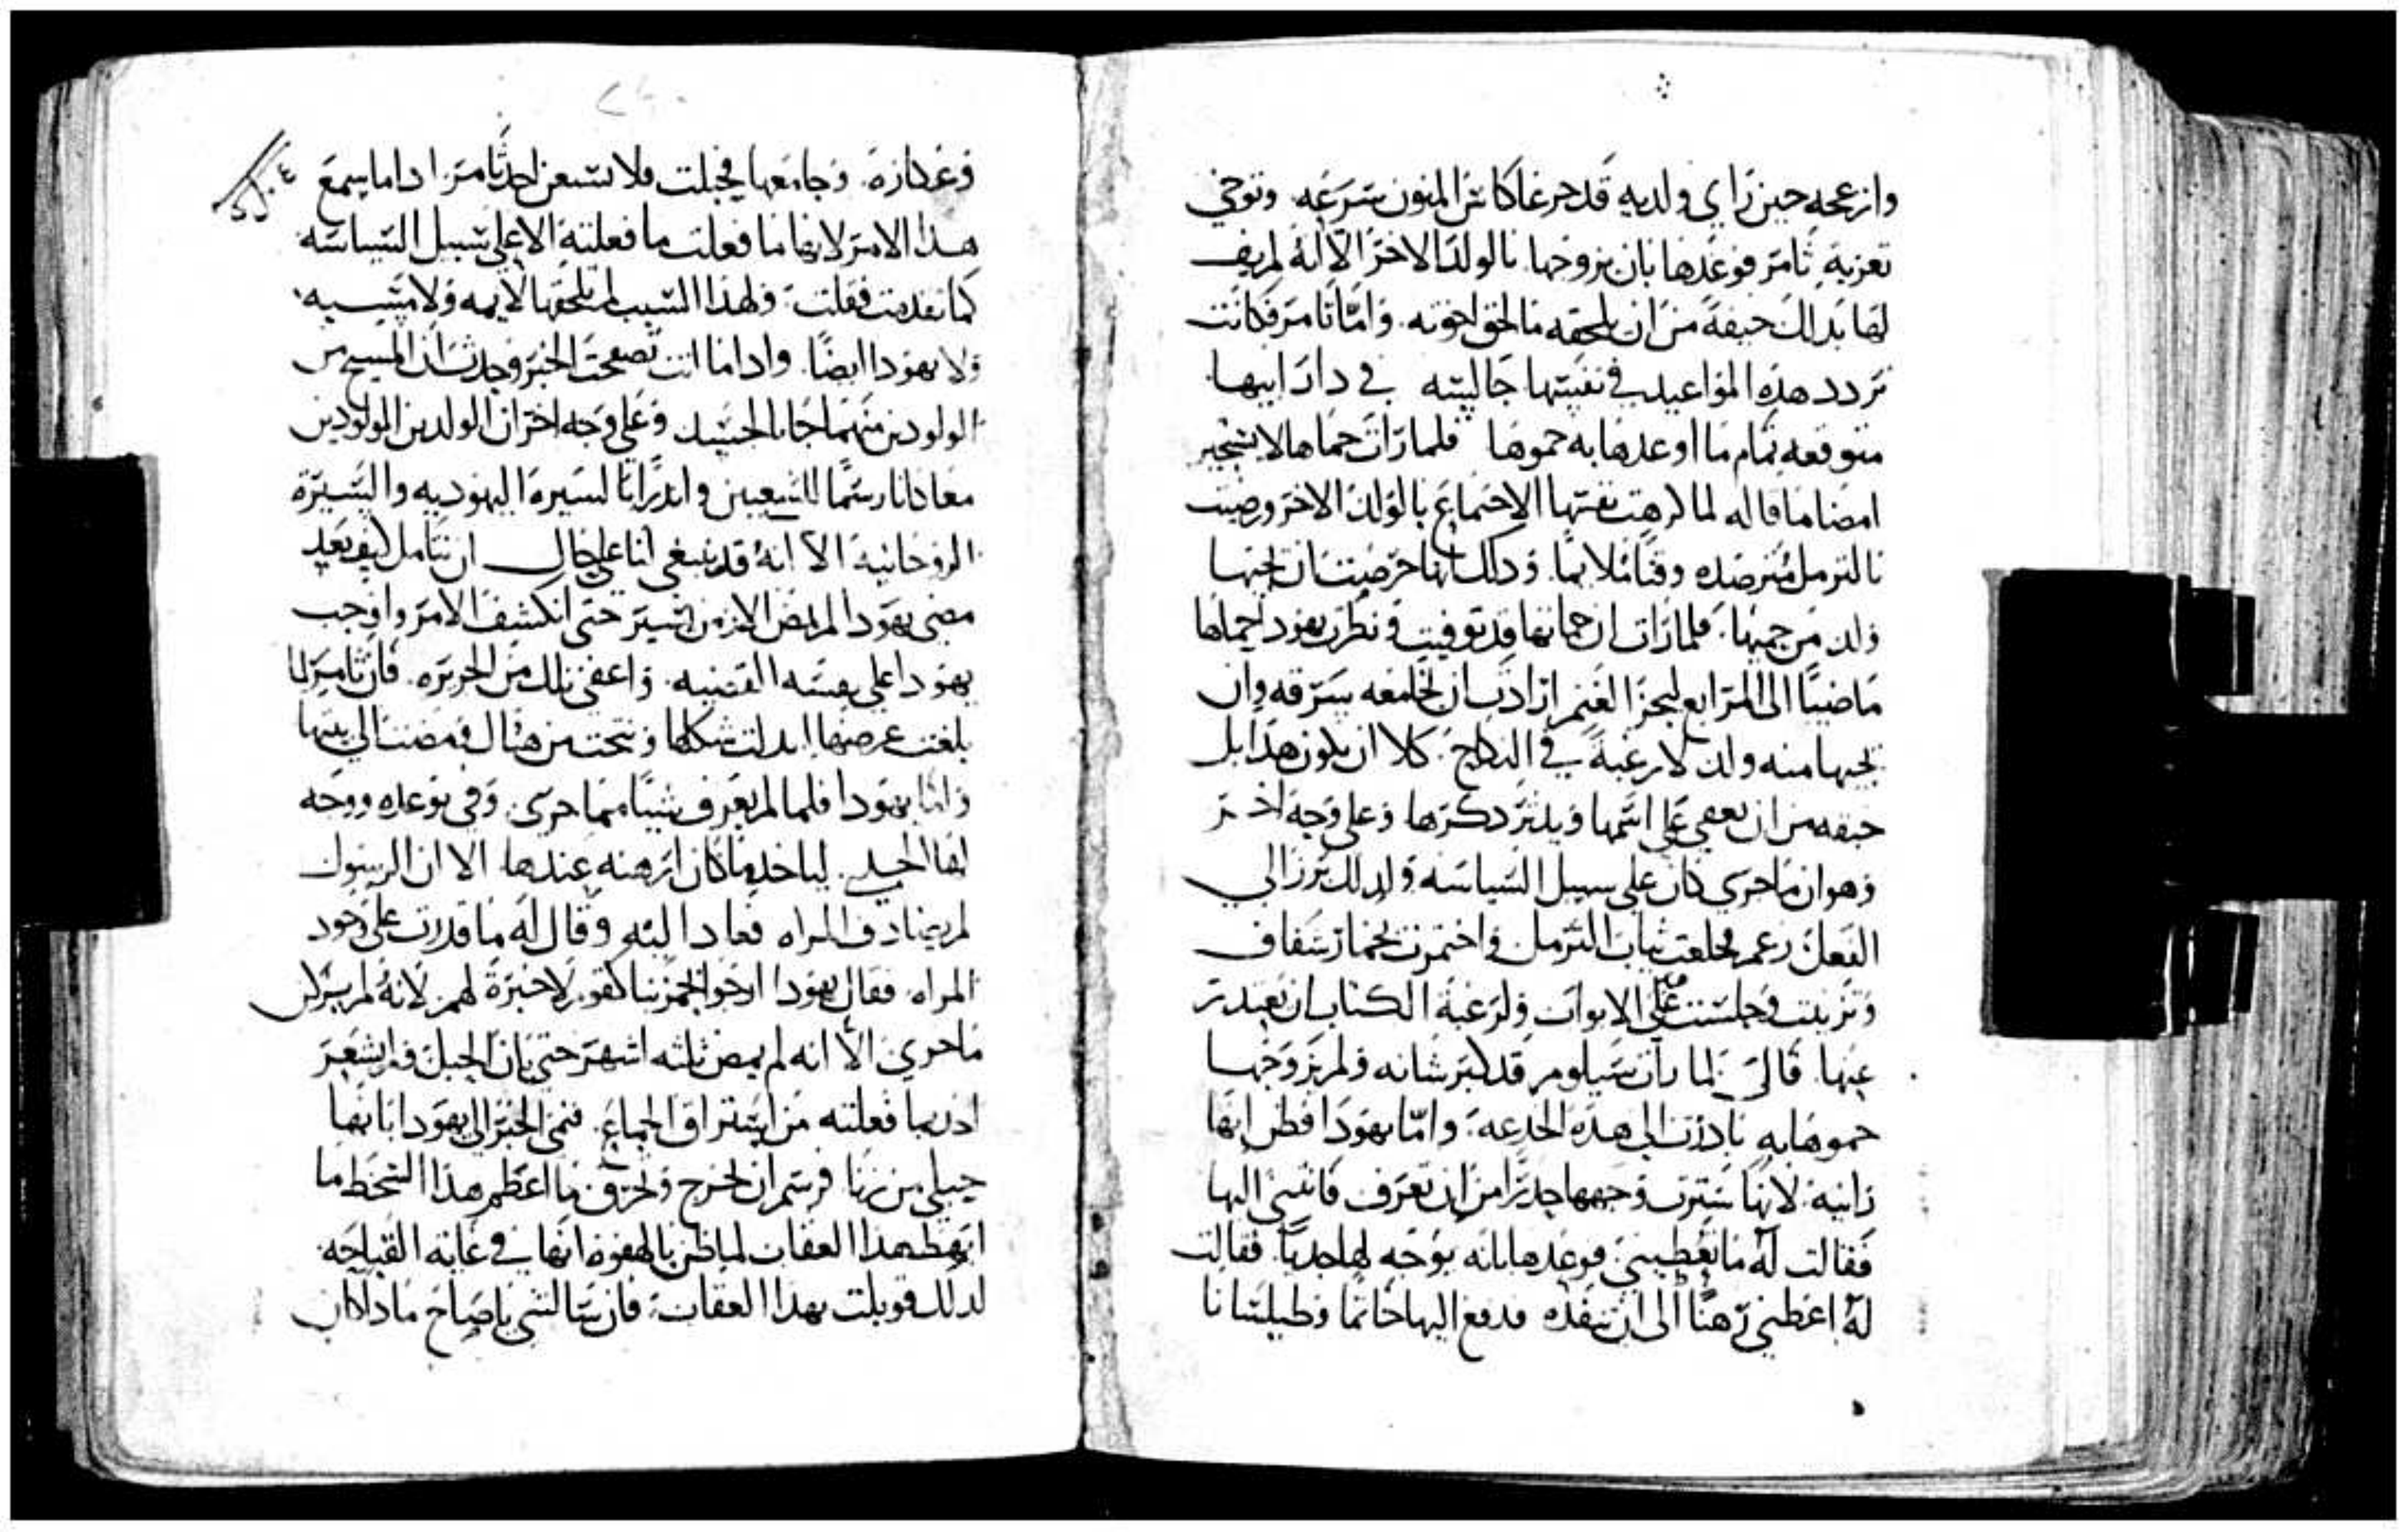 وازعجه حين راي ولديه قد جرعا كاس المنون بسرعه وتوخي
تعزية ثامر فوعدها بان يزوجها بالولد الاخر الا انه لم يف
لها بذلك خيفة من ان يلحقه ما لحق اخوته. واما ثامر فكانت
تردد هذه المواعيد في نفسها جالسه في دار ابيها
متوقعه تمام ما اوعدها به حموها فلما رات حماها لا
امضا ما قاله لما كرهت نفسها الاجتماع بالولد الاخر ورضيت
بالترمل مترصده وقتا ملايما. وذلك انها حرصت ان تحبلها
ولد من حميها. فلما رات ان حماتها قد توفيت ونظرت يهودا حماها
ماضيا الى المرابع ليجز الغنم ارادت ان تجامعه بسرقه وان
تحبلها منه ولد لا رغبة في النكاح. كلا ان يكون هذا بل
خيفه من ان يعفي على اسمها ويدثر ذكرها وعلى وجه اخر
وهو ان ما جرى كان على سبيل السياسه ولذلك برز الى
الفعل زعم فخلعت ثياب الترمل واختمرت بخمار شفاف
وتزينت وجلست على الابواب ولرغبة الكتاب ان يعتذر
عنها. قال لما رات سيلوم قد كبر شانه ولم يزوجها
حموها به بادرت الى هذه الخدعه. واما يهودا فظن انها
زانية. لانها سترت وجهها حذرا من ان تعرف فانثنى اليها
فقالت له ما تعطيني فوعدها بانه يوجه لها جديا. فقالت
له اعطني رهنا الى ان تنفذه فدفع اليها خاتما وطيلسانا
٢٤٠
وعكازة. وجامعها فحبلت فلا يشنعن احد ثامر اذا ما سمع
هذا الامر لانها ما فعلت ما فعلته الا على سبيل السياسه
كما تقدمت فقلت. ولهذا السبب لم تلحقها لايمه ولا مسبه
ولا يهودا ايضا. واذا ما انت تصفحت الخبر وجدت ان المسيح من
الولودين منهما جا بالجسد وعلى وجه اخر ان الولدين المولودين
معا كانا رسما للشعبين وانذارا لسيرة اليهوديه والسيرة
الروحانية الا انه قد ينبغي لنا على حال ان نتامل كيف بعد
مضى يهودا لم يمض الا زمن يسير حتى انكشف الامر واوجب
يهودا على نفسه القضيه. واعفى تلك من الجريره. فان ثامر لما
بلغت غرضها ابدلت شكلها وتنحت من هناك ومضت الى بيتها
واما يهودا فلما لم يعرف شيا مما جرى. وفى بوعده ووجه
لها الجدي. لياخذ ما كان ارهنه عندها الا ان الرسول
لم يصادف المراه فعاد اليه وقال له ما قدرت على وجود
المراه فقال يهودا لانه لم يدرك
ما جرى الا انه لم يمض ثلثه اشهر حتى بان الحبل ولم يشعر
احد بما فعلته من استراق الجماع. فنمى الخبر الى يهودا بانها
حبلى من زنا فرسم ان تخرج وتحرق ما اعظم هذا السخط ما
ابهظ هذا العقاب لما ظن بالهفوه انها في غاية القباحه
لذلك قوبلت بهذا العقاب. فان سالتني يا صاح ماذا كان